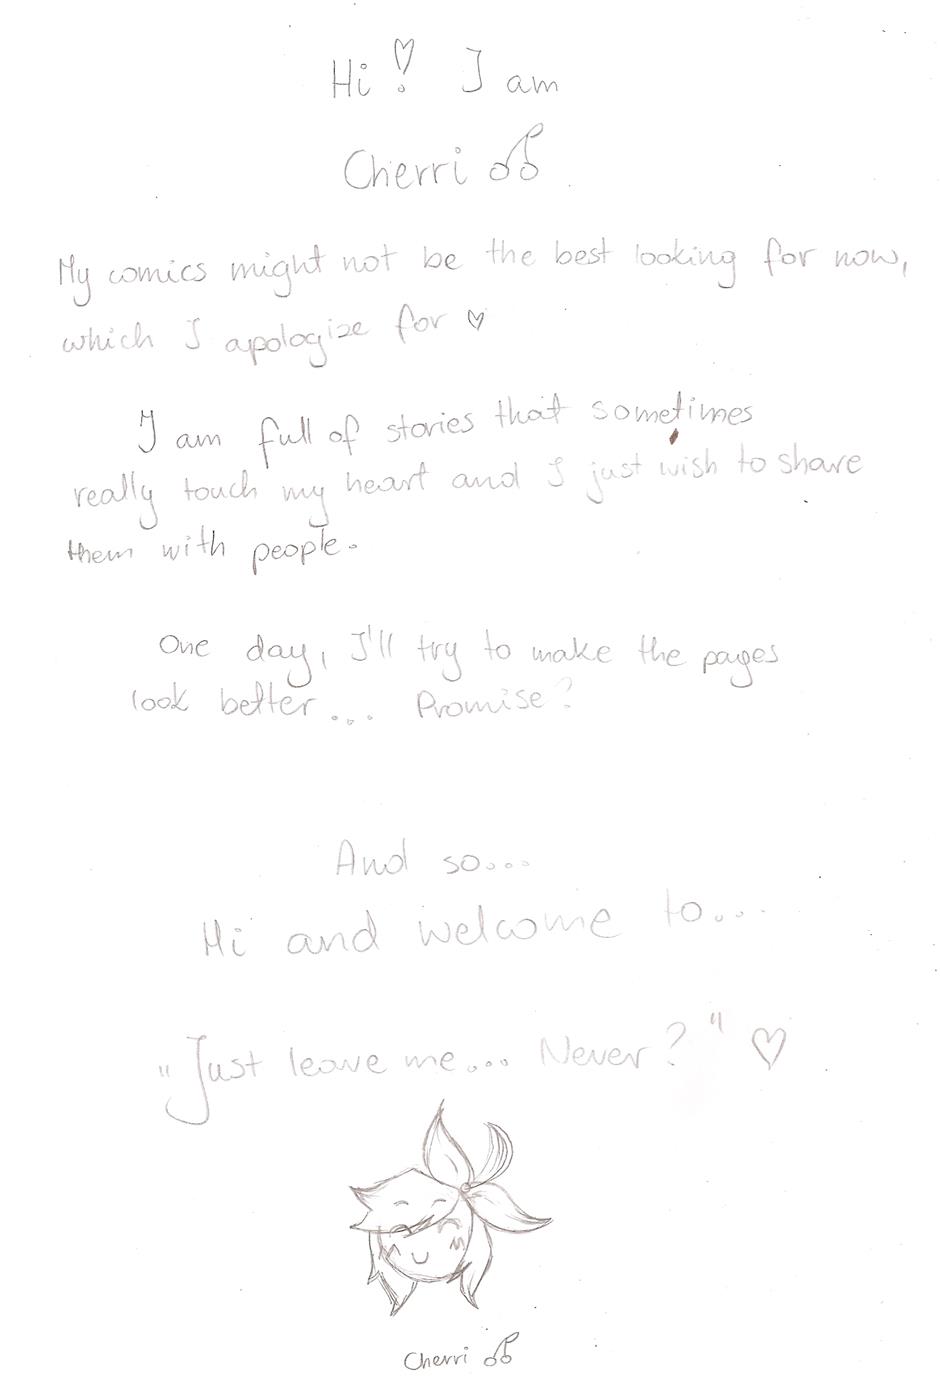 Hi! I am
Cherri
My comics might not be the best looking for now,
which I apologize for ♡
I am full of stories that sometimes
really touch my heart and I just wish to share
them with people.
One day, I'll try to make the pages
look better... Promise?
And so...
Hi and welcome to...
"Just leave me... Never?" ♡
Cherri